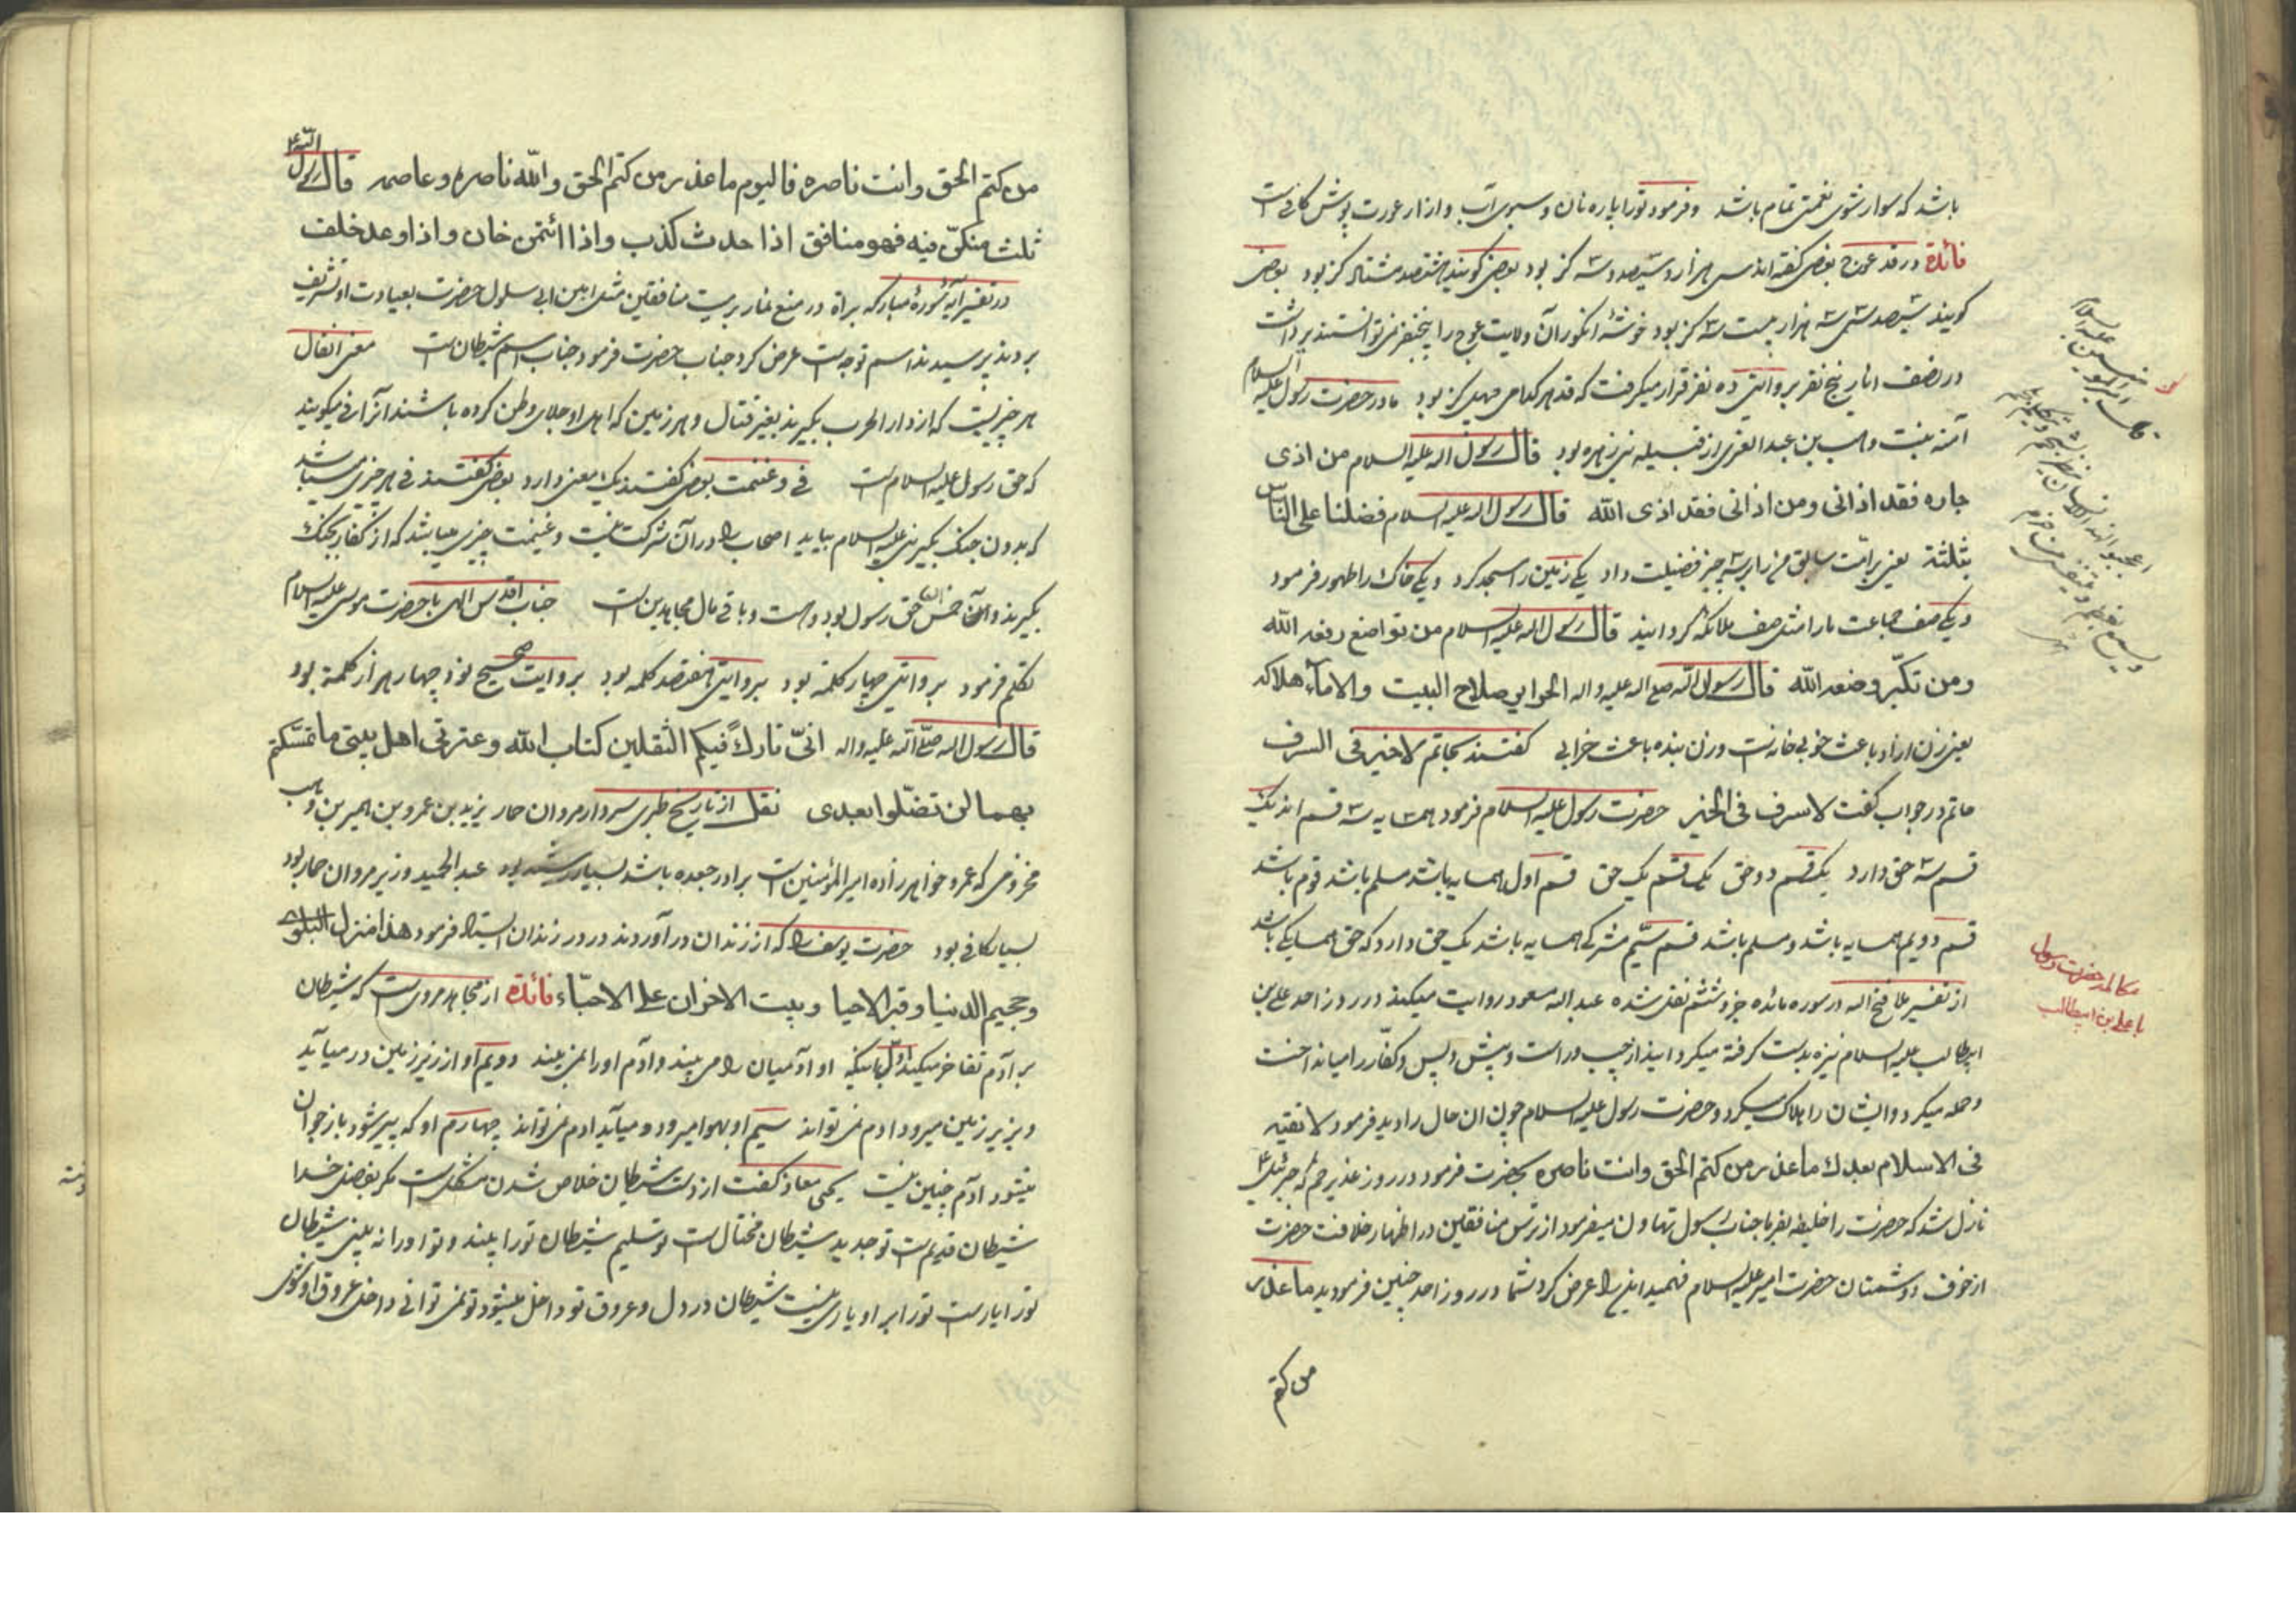 باشد که سوار شوی نعمتی تمام باشد و فرمود تو را پاره نان و سبوی آب و ازار عورت پوش کافی است
فائدة در قد عوج بعضی گفته‌اند سی هزار و سیصد و سه گز بود بعضی گویند هشتصد هشتاد گز بود بعضی
گویند سیصد سی سه هزار بیست سه گز بود خوشۀ انگور آن ولایت عوج را پنج نفر نمی توانستند برداشت
در نصف انار پنج نفر بروایتی ده نفر قرار میگرفت که قد هر کدامی چهل گز بود مادر حضرت رسول علیه السلام
آمنه بنت وهب بن عبد العزی از قبیله بنی زهره بود قال رسول اله علیه السلام من اذی
جاره فقد اذانی ومن اذانی فقد اذی الله قال رسول اله علیه السلام فضلنا علی الناس
بثلثة یعنی بر امت سابق مرا به سه چیز فضیلت داد یکی زمین را مسجد کرد و یکی خاک را طهور فرمود
و یکی صف جماعت ما را مثل صف ملائکه گردانید قال رسول اله علیه السلام من تواضع رفعه الله
ومن تکبّر وضعه الله قال رسول الله صلی اله علیه واله الحرایر صلاح البیت والاماء هلاکه
یعنی زن آزاد باعث خوبی خانه است و زن بنده باعث خرابی گفتند بحاتم لا خیر فی السرف
حاتم در جواب گفت لا سرف فی الخیر حضرت رسول علیه السلام فرمود همسایه سه قسم‌اند یک
قسم سه حق دارد یک قسم دو حق یک قسم یک حق قسم اول همسایه باشد مسلم باشد قوم باشد
قسم دویم همسایه باشد و مسلم باشد قسم سیّم مشرکی همسایه باشد یک حق دارد که حق همسایگی باشد
از تفسیر ملا فتح اله در سوره مائده جزو ششم نقل شده عبد اله مسعود روایت میکند در روز احد علی بن
ابیطالب علیه السلام نیزه بدست گرفته میگردانید از چپ و راست و پیش و پس و کفّار را میانداخت
و حمله میکرد و ایشان را هلاک میکرد و حضرت رسول علیه السلام چون ان حال را دید فرمود لا تقیة
فی الاسلام بعدك ما عذر من کتم الحق وانت ناصره بحضرت فرمود در روز غدیر خم که جبرئیل ع
نازل شد که حضرت را خلیفه بفرما جناب رسول تهاون میفرمود از ترس منافقین در اظهار خلافت حضرت
از خوف دشمنان حضرت امیر علیه السلام فهمید این را عرض کرد شما در روز احد چنین فرمودید ما عذر
من کتم
مکالمه حضرت رسول
با علی بن ابیطالب
من کتم الحق وانت ناصره فالیوم ما عذر من کتم الحق والله ناصره وعاصمه قال رسول الله ع
ثلث من کنّ فیه فهو منافق اذا حدث کذب واذا ائتمن خان واذا وعد خلف
در تفسیر آیه سُورۀ مبارکه براة در منع نماز بر میت منافقین مثل ابن ابی سلول حضرت بعیادت او تشریف
بردند پرسیدند اسم تو چه است عرض کرد حباب حضرت فرمود حباب اسم شیطان است معنی انفال
هر چیزیست که از دار الحرب بگیرند بغیر قتال و هر زمین که اهل او جلای وطن کرده باشند آنرا فی میگویند
که حق رسول علیه السلام است فی و غنیمت بعضی گفتند یک معنی دارد بعضی گفتند فی هر چیزی میباشد
که بدون جنگ بگیر نبی علیه السلام بیاید اصحاب را در آن شرکت نیست و غنیمت چیزی میباشد که از کفار بجنگ
بگیرند و از آن خمس حق رسول بود و هست و باقی مال مجاهدین است جناب اقدس الهی با حضرت موسی علیه السلام
تکلم فرمود بروایتی چهار کلمه بود بروایتی هفتصد کلمه بود بروایت صحیح نود چهار هزار کلمه بود
قال رسول اله صلّی الله علیه واله انّی تارك فیکم الثقلین کتاب الله وعترتی اهل بیتی ما تمسّکتم
بهما لن تضلّوا بعدی نقل از تاریخ طبری سردار مروان حمار یزید بن عمرو بن هبیر بن وهب
مخزومی که عمرو خواهرزاده امیر المؤمنین است برادر جعده باشد بسیار رشید بود عبد الحمید وزیر مروان حمار بود
بسیار کافی بود حضرت یوسف را که از زندان در آوردند در در زندان ایستاد فرمود هذا منزل البلوی
وجحیم الدنیا وقبر الاحیا وبیت الاخوان علی الاحبّاء فائدة از مجاهد مروی است که شیطان
بر آدم تفاخر میکند اوّل بانکه او آدمیان را می بیند و آدم او را نمی بیند دویم او از زیر زمین در میآید
و بزیر زمین میرود ادم نمی تواند سیّم او بهوا میرود و میآید ادم نمی تواند چهارم او که پیر شود باز جوان
میشود ادم چنین نیست یحیی معاذ گفت از دست شیطان خلاص شدن مشکل است مگر بفضل خدا
شیطان قدیم است تو جدید شیطان محتال است تو سلیم شیطان تو را بیند و تو او را نه بینی شیطان
تو را یار است تو را بر او یاری نیست شیطان در دل و عروق تو داخل میشود تو نمی توانی داخل عروق او شوی